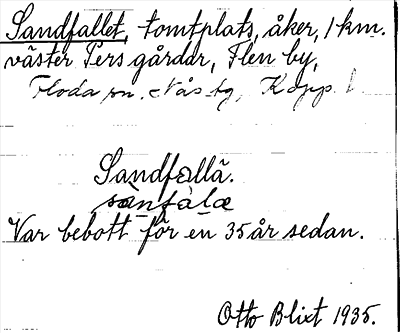 Sandfallet, tomtplats, åker, 1 km.
väster Pers gårdar, Flen by,
Floda sn. Nås tg, Kopp. l.
Sandfallä.
Var bebott för en 35 år sedan.
Otto Blixt 1935.